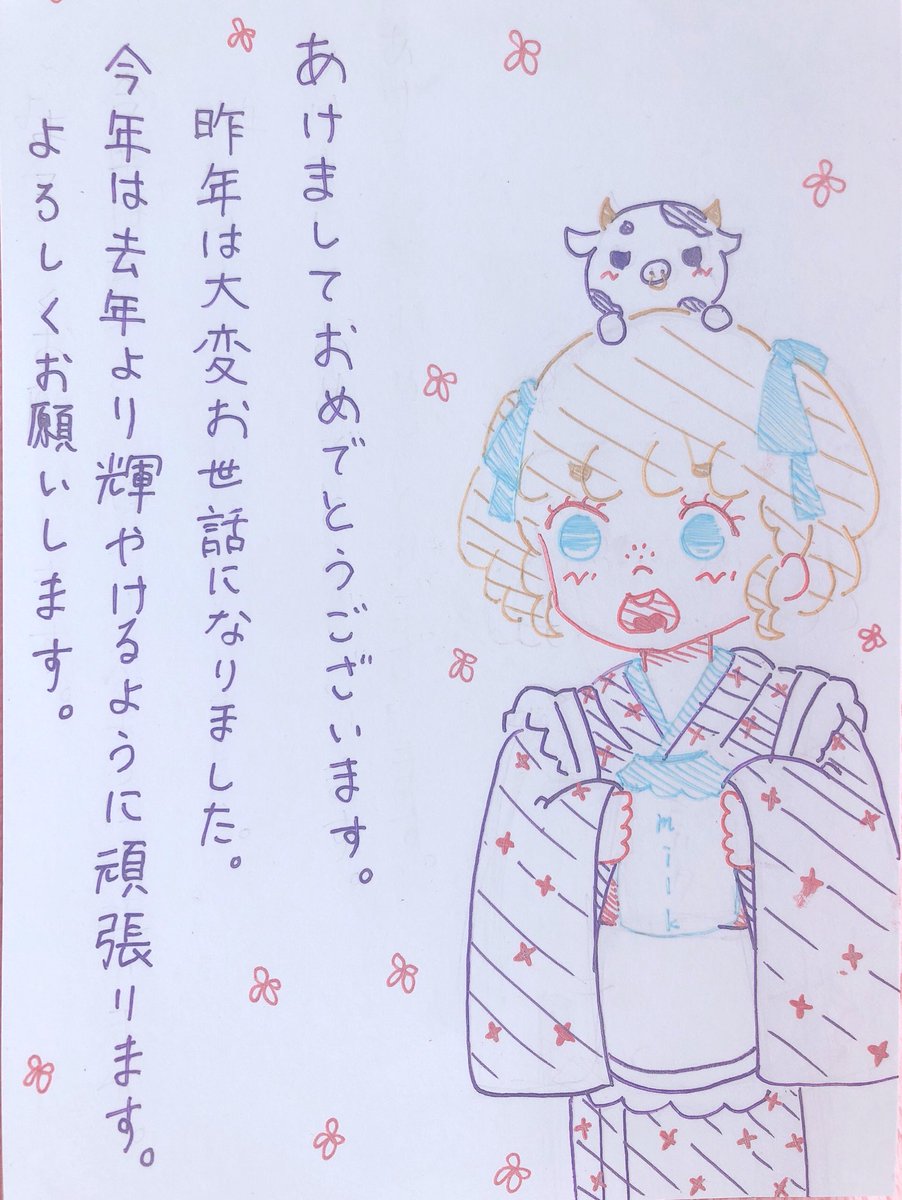 あけましておめでとうございます。
昨年は大変お世話になりました。
今年は去年より輝やけるように頑張ります。
よろしくお願いします。
milk